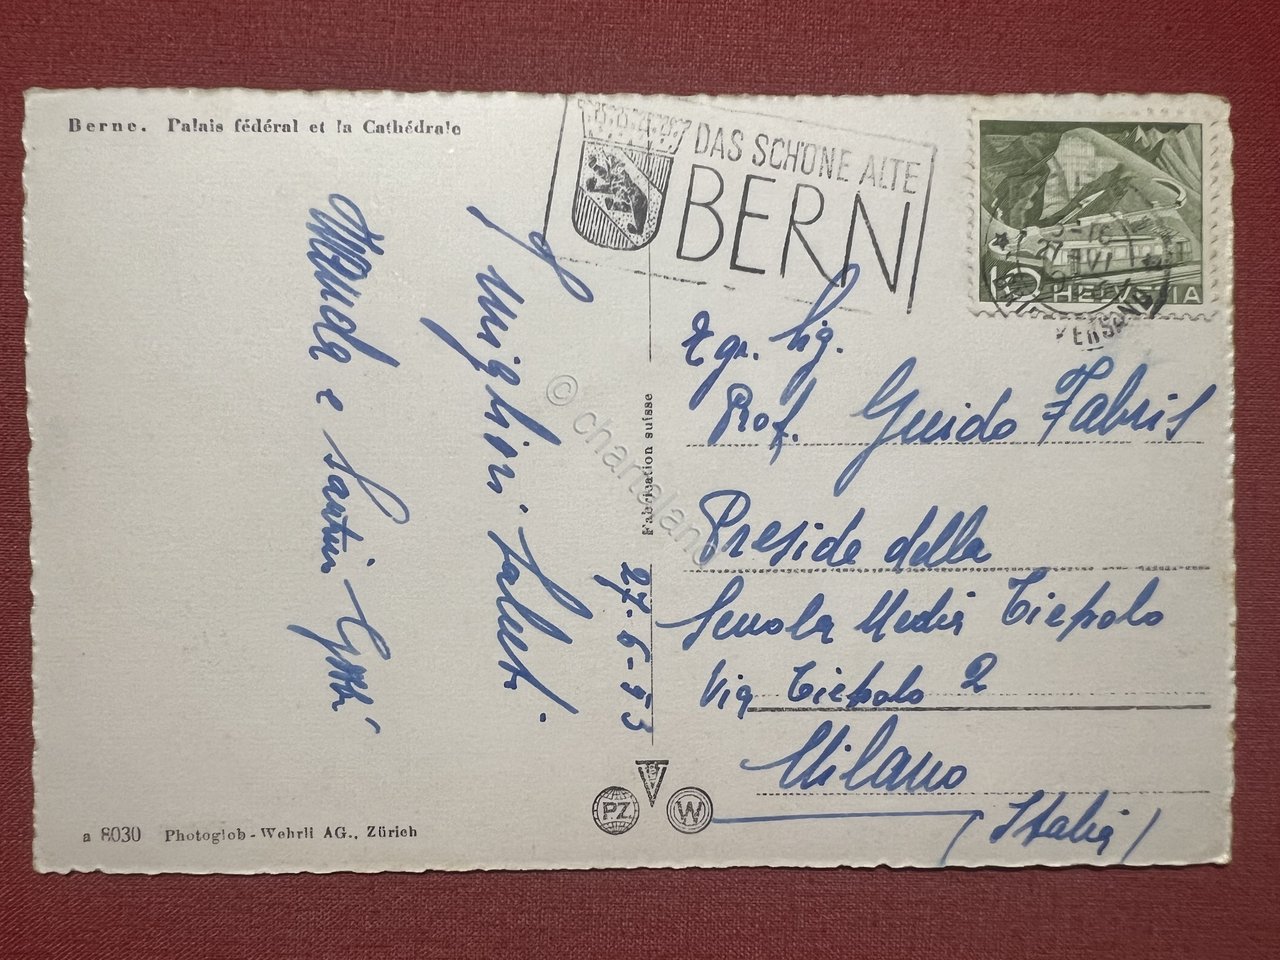 Berne. Palais fédéral et la Cathédrale
DAS SCHÖNE ALTE
BERN
10 HELVETIA
27. VI
VERSAND
27-6-53
Migliori Saluti
e
Egr. Sig.
Prof. Guido Fabris
Preside della
Scuola Media Tiepolo
Via Tiepolo 2
Milano
(Italia)
Fabrication suisse
© chartaland
P.Z.
W
a 8030 Photoglob-Wehrli AG., Zürich